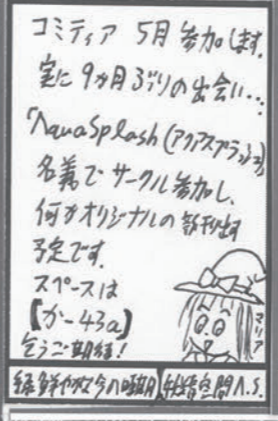 コミティア 5月 参加します。
実に9か月ぶりの出会い…。
「AquaSplash(アクアスプラッシュ)」
名義でサークル参加し、
何かオリジナルの新刊出す
予定です。
スペースは
【かー43a】
乞うご期待!
マリア